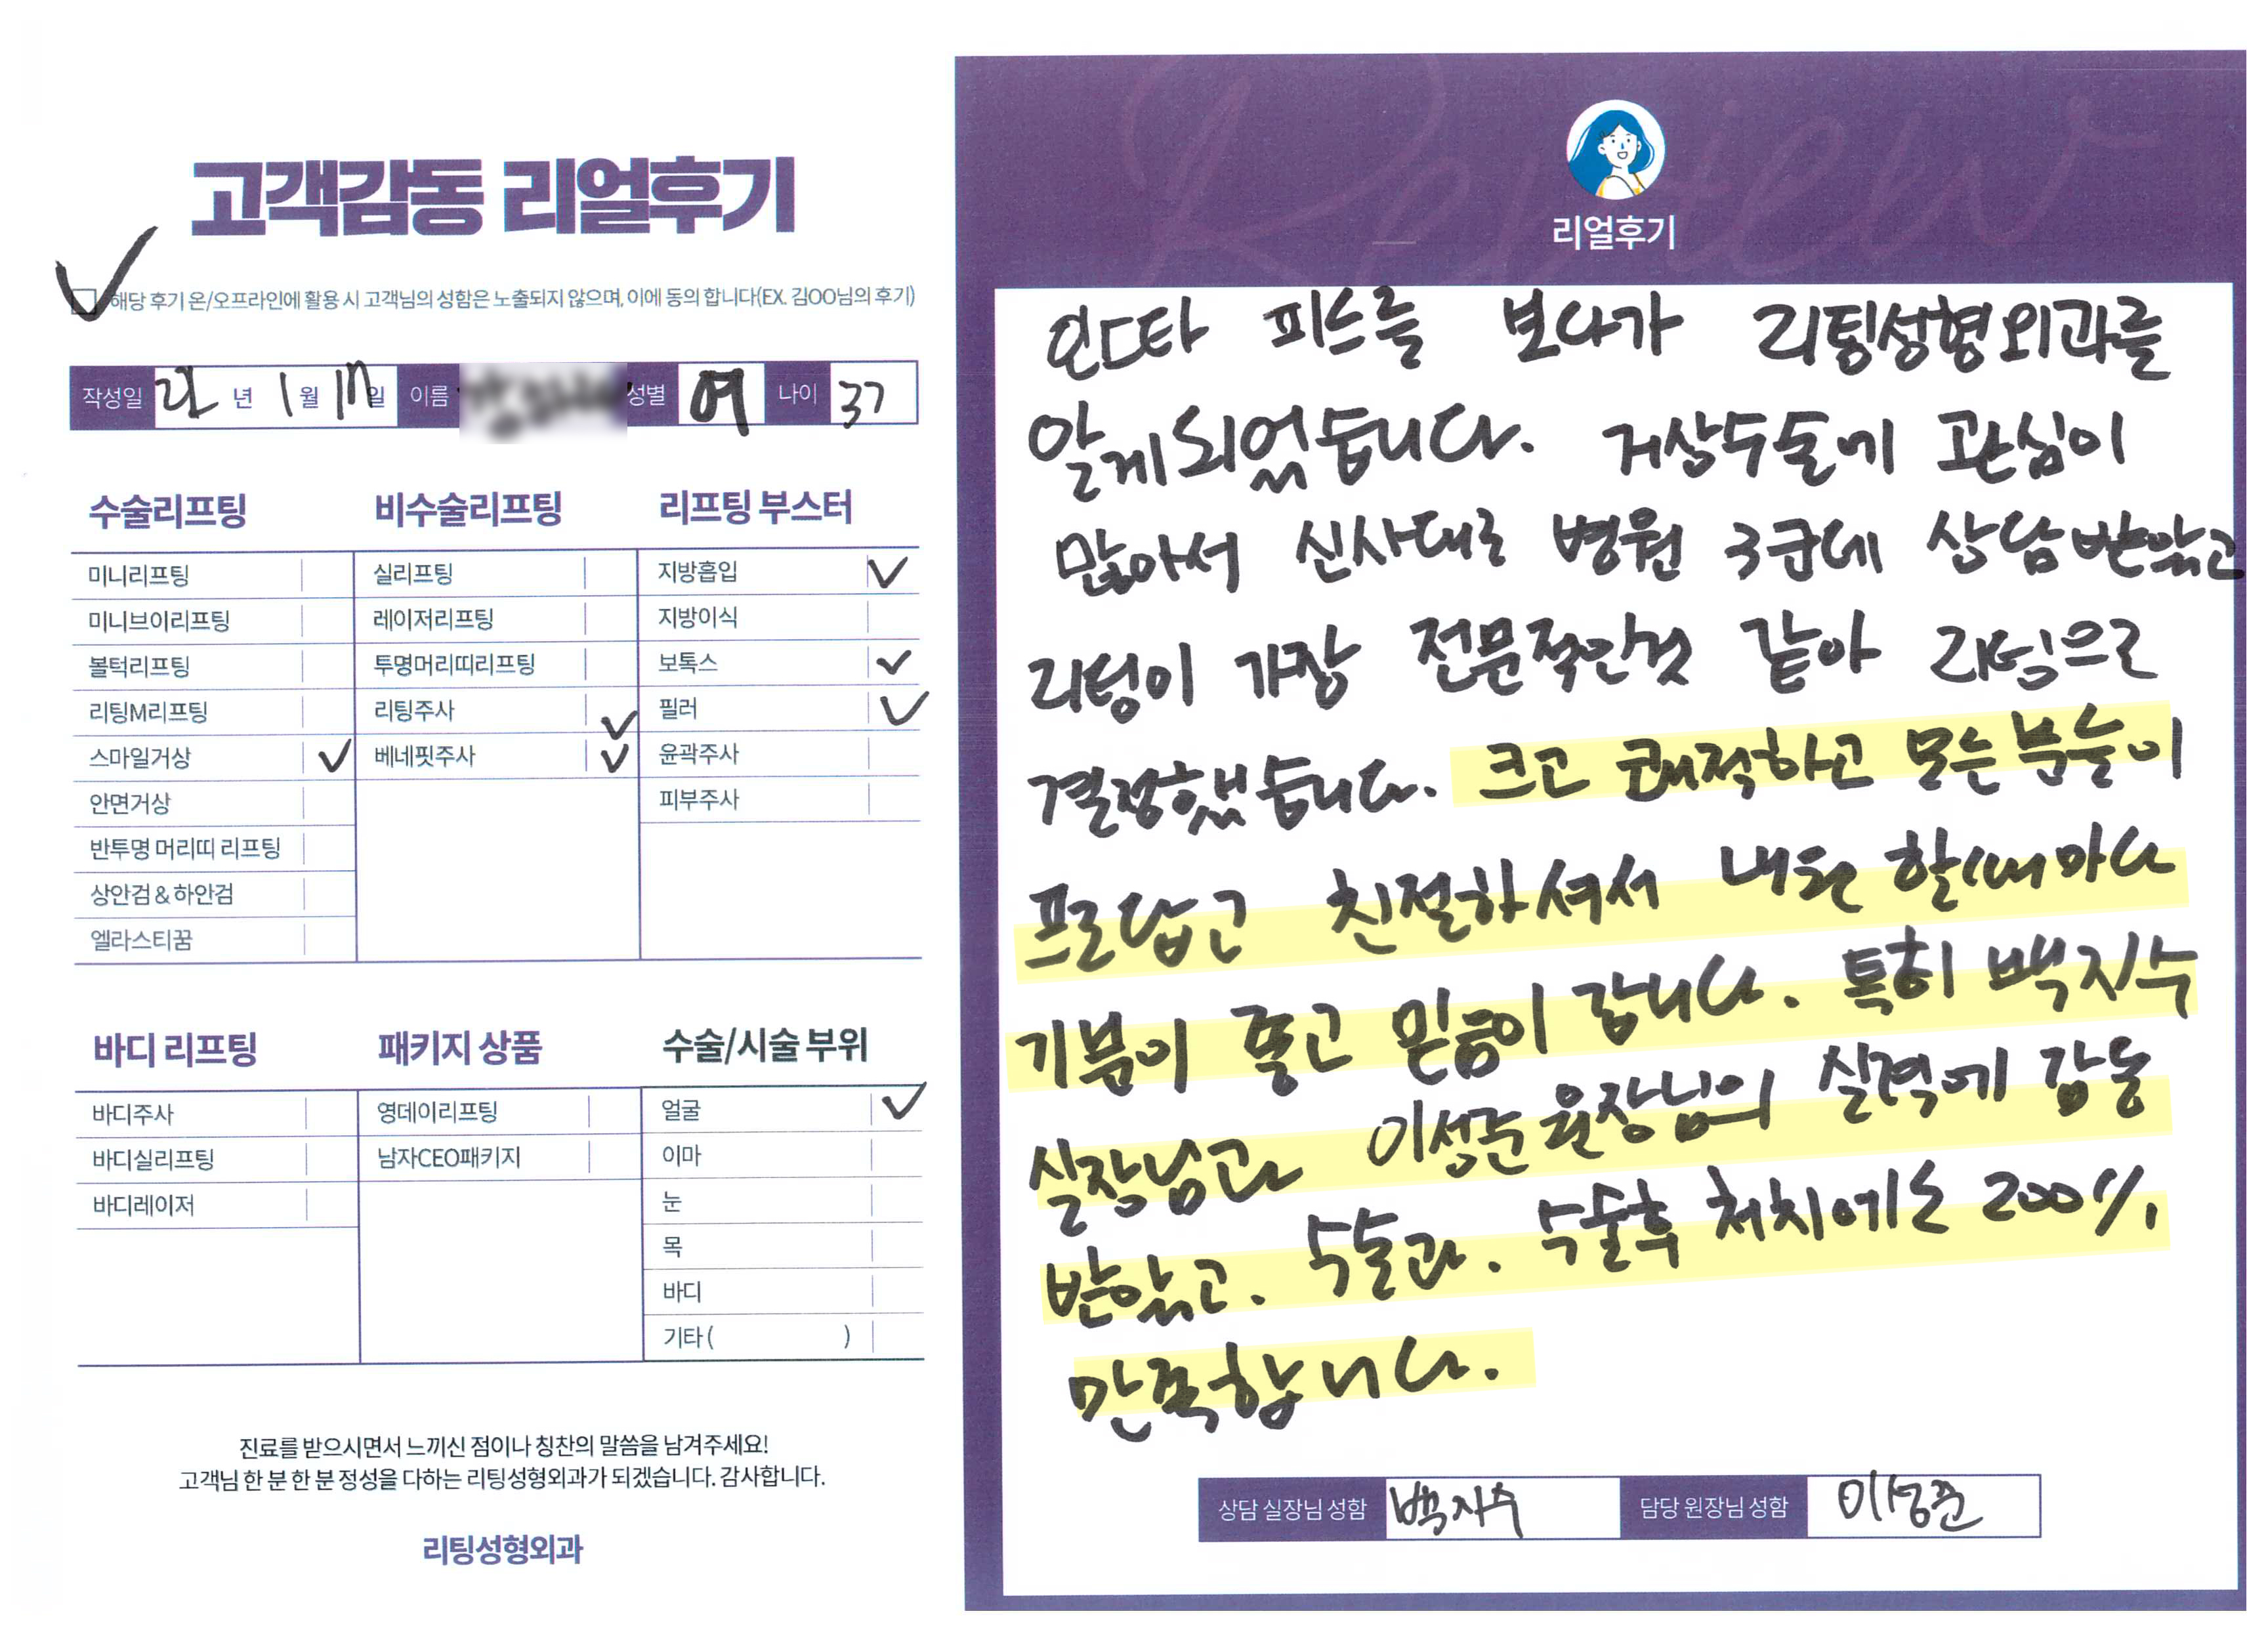 고객감동 리얼후기
해당 후기 온/오프라인에 활용 시 고객님의 성함은 노출되지 않으며, 이에 동의 합니다(EX. 김OO님의 후기)
작성일 22 년 1 월 17 일 이름 성별 여 나이 37
수술리프팅
미니리프팅
미니브이리프팅
볼턱리프팅
리팅M리프팅
스마일거상 ✓
안면거상
반투명 머리띠 리프팅
상안검 & 하안검
엘라스티꿈
비수술리프팅
실리프팅
레이저리프팅
투명머리띠리프팅
리팅주사 ✓
베네핏주사 ✓
리프팅 부스터
지방흡입 ✓
지방이식
보톡스 ✓
필러 ✓
윤곽주사
피부주사
바디 리프팅
바디주사
바디실리프팅
바디레이저
패키지 상품
영데이리프팅
남자CEO패키지
수술/시술 부위
얼굴 ✓
이마
눈
목
바디
기타 ( )
진료를 받으시면서 느끼신 점이나 칭찬의 말씀을 남겨주세요!
고객님 한 분 한 분 정성을 다하는 리팅성형외과가 되겠습니다. 감사합니다.
리팅성형외과
Review
리얼후기
인스타 피드를 보다가 리팅성형외과를
알게되었습니다. 거상수술에 관심이
많아서 신사대로 병원 3군데 상담받았고
리팅이 가장 전문적인것 같아 리팅으로
결정했습니다. 크고 쾌적하고 모든분들이
프로답고 친절하셔서 내원 할때마다
기분이 좋고 믿음이 갑니다. 특히 백지수
실장님과 이성준 원장님의 실력에 감동
받았고. 수술과. 수술후 처치에는 200%
만족합니다.
상담 실장님 성함 백지수 담당 원장님 성함 이성준